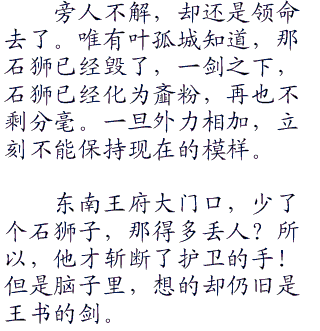 旁人不解，却还是领命
去了。唯有叶孤城知道，那
石狮已经毁了，一剑之下，
石狮已经化为齑粉，再也不
剩分毫。一旦外力相加，立
刻不能保持现在的模样。
东南王府大门口，少了
个石狮子，那得多丢人？所
以，他才斩断了护卫的手！
但是脑子里，想的却仍旧是
王书的剑。